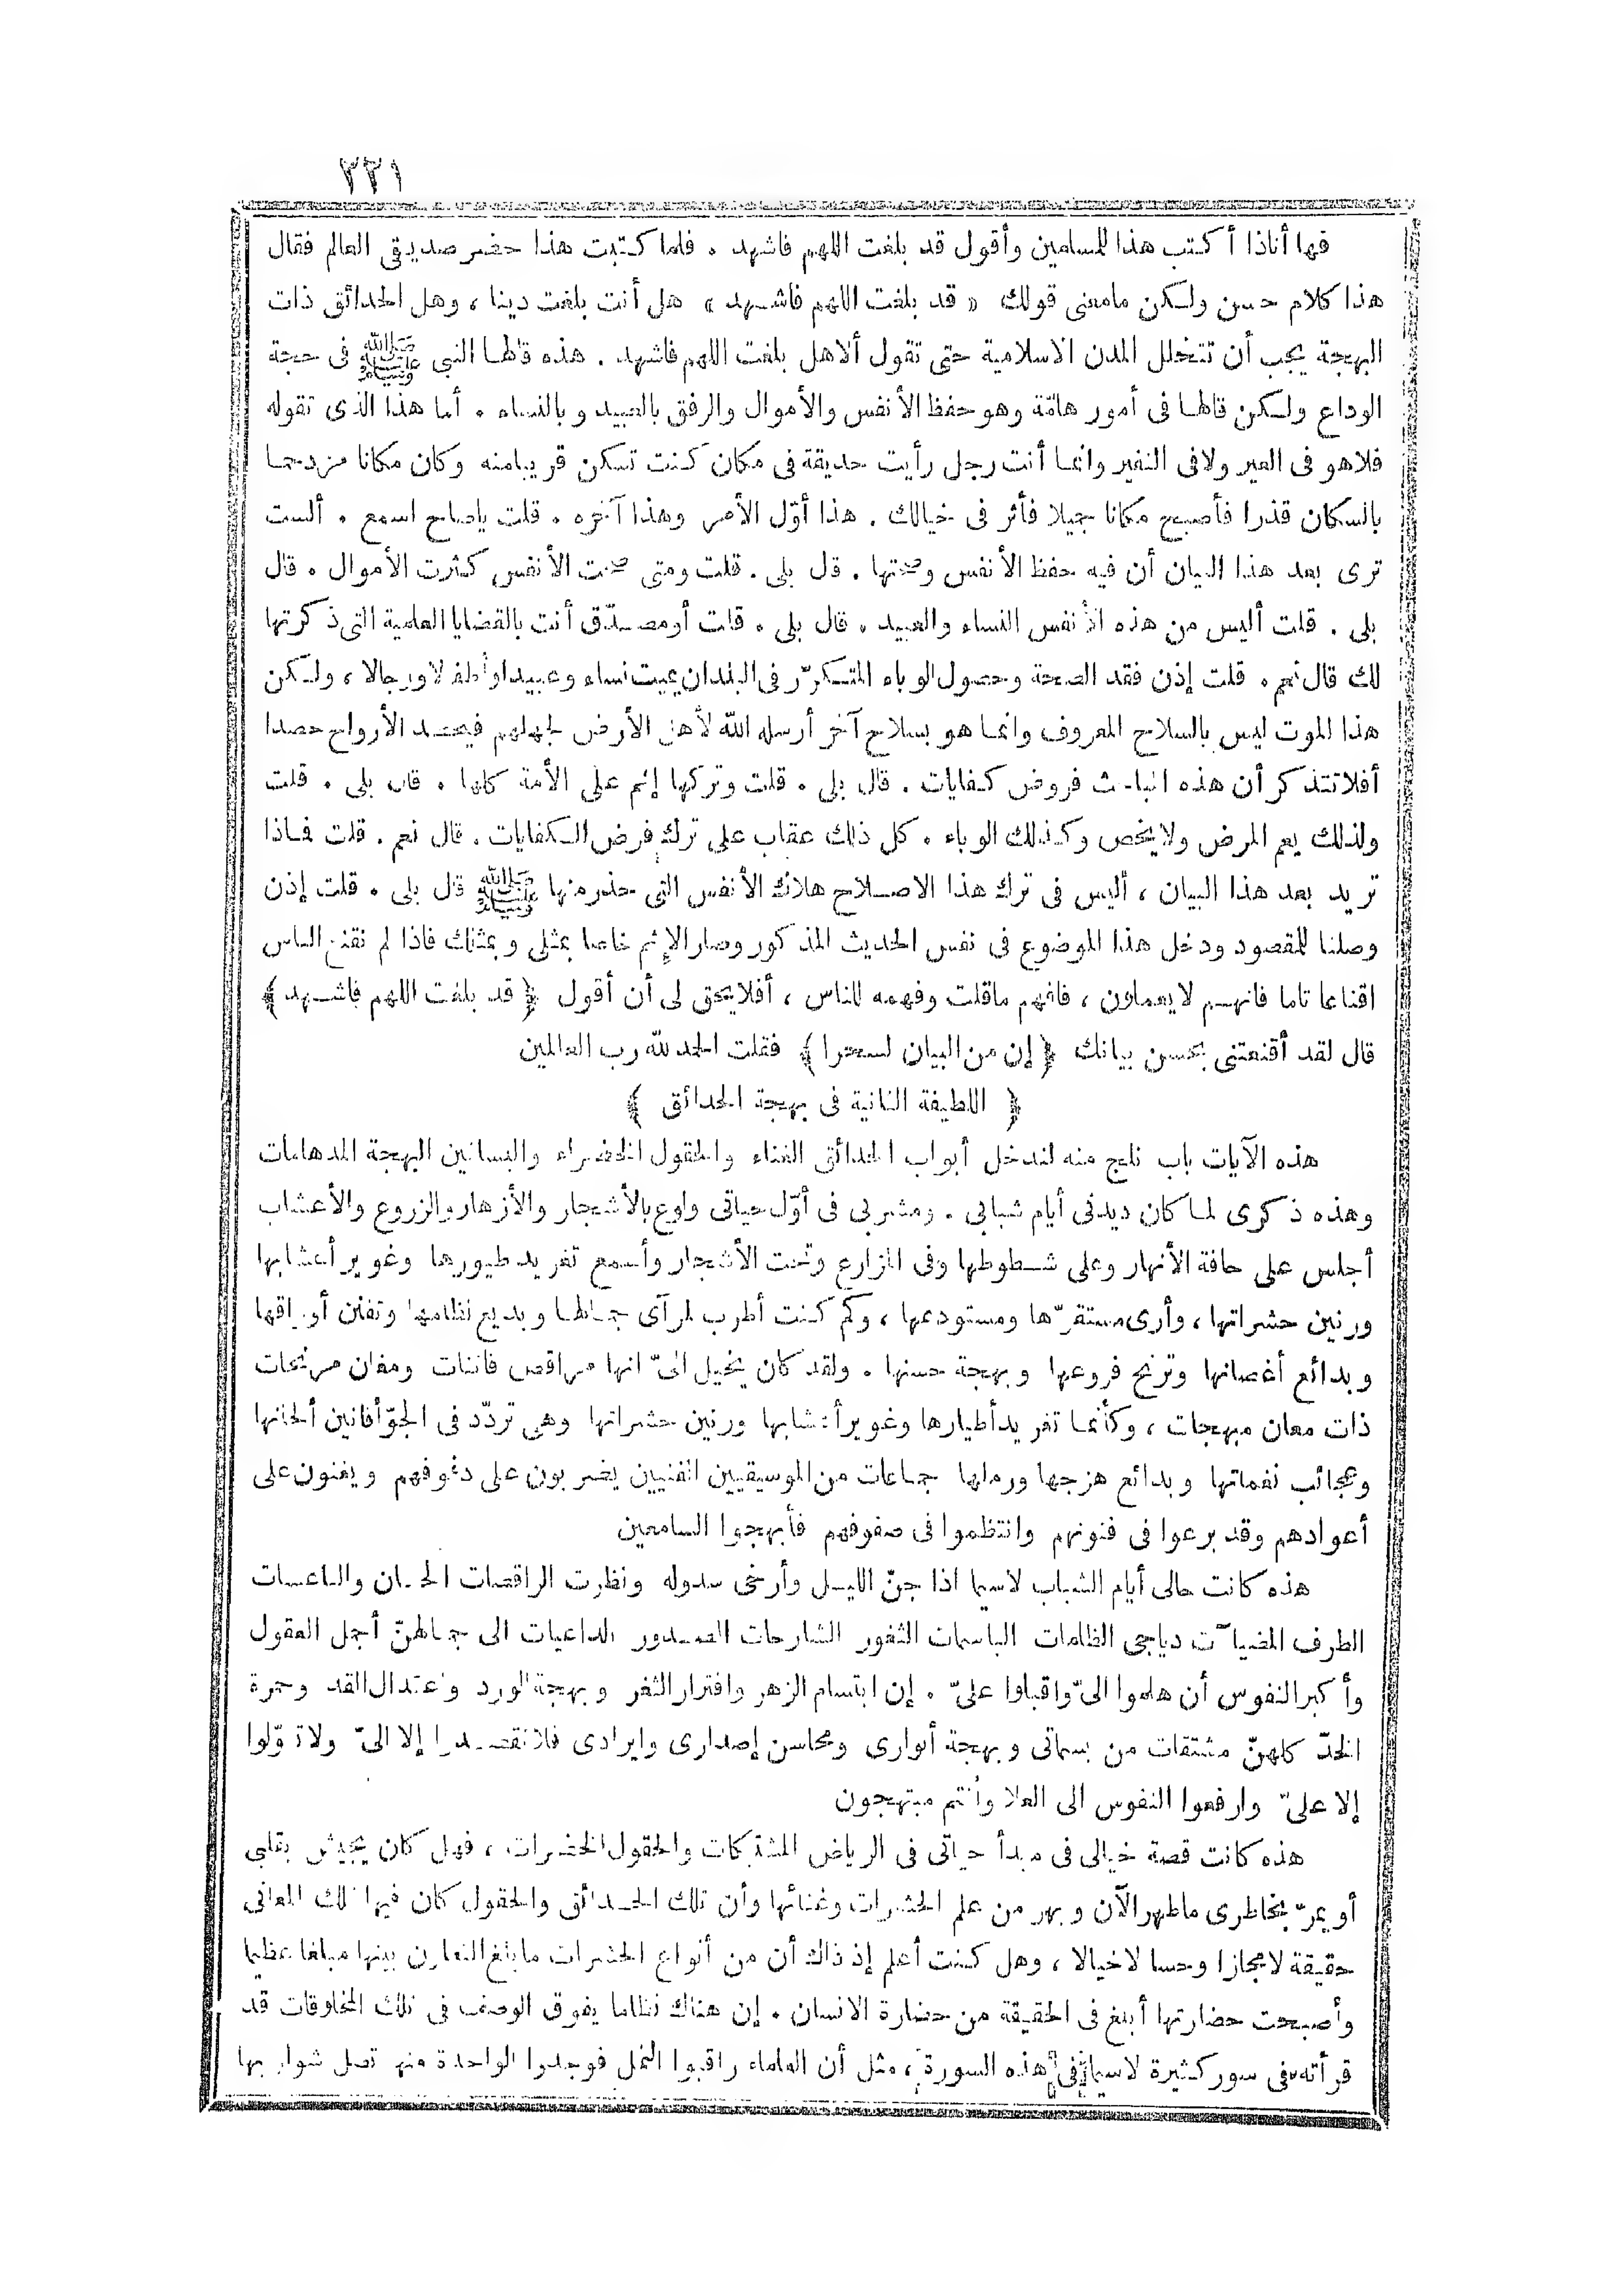 ٢٢١
فها أناذا أكتب هذا للمسلمين وأقول قد بلغت اللهم فاشهد . فلما كتبت هذا حضر صديقى العالم فقال
هذا كلام حسن ولكن مامعنى قولك « قد بلغت اللهم فاشهد » هل أنت بلغت دينا ، وهل الحدائق ذات
البهجة يجب أن تتخلل المدن الاسلامية حتى تقول ألاهل بلغت اللهم فاشهد . هذه قالها النبى ﷺ فى حجة
الوداع ولكن قالها فى أمور هامّة وهو حفظ الأنفس والأموال والرفق بالعبيد وبالنساء . أما هذا الذى تقوله
فلاهو فى العير ولافى النفير وانما أنت رجل رأيت حديقة فى مكان كنت تسكن قريبامنه وكان مكانا مزدحما
بالسكان قذرا فأصبح مكانا جميلا فأثر فى خيالك . هذا أوّل الأمر وهذا آخره . قلت ياصاح اسمع . ألست
ترى بعد هذا البيان أن فيه حفظ الأنفس وصحتها . قال بلى . قلت ومتى صحت الأنفس كثرت الأموال . قال
بلى . قلت أليس من هذه الأنفس النساء والعبيد . قال بلى . قلت أومصدّق أنت بالقضايا العلمية التى ذكرتها
لك قال نعم . قلت إذن فقد الصحة وحصول الوباء المتكرّر فى البلدان يميت نساء وعبيدا وأطفالا ورجالا ، ولكن
هذا الموت ليس بالسلاح المعروف وانما هو بسلاح آخر أرسله الله لأهل الأرض لجهلهم فيحصد الأرواح حصدا
أفلاتتذكر أن هذه المباحث فروض كفايات . قال بلى . قلت وتركها إثم على الأمة كلها . قال بلى . قلت
ولذلك يعم المرض ولايخص وكذلك الوباء . كل ذلك عقاب على ترك فرض الكفايات . قال نعم . قلت فماذا
تريد بعد هذا البيان ، أليس فى ترك هذا الاصلاح هلاك الأنفس التى حذر منها ﷺ قال بلى . قلت إذن
وصلنا للمقصود ودخل هذا الموضوع فى نفس الحديث المذكور وصار الإثم خاصا بمثلى وبمثلك فاذا لم نقنع الناس
اقناعا تاما فانهم لايعملون ، فافهم ماقلت وفهمه للناس ، أفلايحق لى أن أقول ﴿ قد بلغت اللهم فاشهد ﴾
قال لقد أقنعتنى بحسن بيانك ﴿ إن من البيان لسحرا ﴾ فقلت الحمد لله رب العالمين
﴿ اللطيفة الثانية فى بهجة الحدائق ﴾
هذه الآيات باب نلج منه لندخل أبواب الحدائق الغناء والحقول الخضراء والبساتين البهجة المدهامات
وهذه ذكرى لما كان ديدنى أيام شبابى . ومشربى فى أوّل حياتى ولوع بالأشجار والأزهار والزروع والأعشاب
أجلس على حافة الأنهار وعلى شطوطها وفى المزارع وتحت الأشجار وأسمع تغريد طيورها وغوير أعشابها
ورنين حشراتها ، وأرى مستقرّها ومستودعها ، وكم كنت أطرب لمرآى جمالها وبديع نظامها وتفنن أوراقها
وبدائع أغصانها وترنح فروعها وبهجة حسنها . ولقد كان يخيل الىّ انها مراقص فاتنات ومغان مرنحات
ذات معان مبهجات ، وكأنما تغريد أطيارها وغوير أعشابها ورنين حشراتها وهى تردّد فى الجوّ أفانين ألحانها
وعجائب نغماتها وبدائع هزجها ورملها جماعات من الموسيقيين المغنيين يضربون على دفوفهم ويغنون على
أعوادهم وقد برعوا فى فنونهم وانتظموا فى صفوفهم فأبهجوا السامعين
هذه كانت حالى أيام الشباب لاسيما اذا جنّ الليل وأرخى سدوله ونظرت الراقصات الحسان والناعسات
الطرف المضيآت دياجى الظلمات الباسمات الثغور الشارحات الصدور الداعيات الى جمالهنّ أجل العقول
وأكبر النفوس أن هلموا الىّ واقبلوا علىّ . إن ابتسام الزهر وافترار الثغر وبهجة الورد واعتدال القد وحمرة
الخدّ كلهنّ مشتقات من بسماتى وبهجة أنوارى ومحاسن إصدارى وايرادى فلاتقصدوا إلا الىّ ولاتعوّلوا
إلا علىّ وارفعوا النفوس الى العلا وأنتم مبتهجون
هذه كانت قصة خيالى فى مبدأ حياتى فى الرياض المشتبكات والحقول الخضرات ، فهل كان يجيش بقلبى
أو يمرّ بخاطرى ماظهر الآن وبهر من علم الحشرات وغنائها وأن تلك الحدائق والحقول كان فيها تلك المعانى
حقيقة لامجازا وحسا لاخيالا ، وهل كنت أعلم إذ ذاك أن من أنواع الحشرات مابلغ التعاون بينها مبلغا عظيما
وأصبحت حضارتها أبلغ فى الحقيقة من حضارة الانسان . إن هناك نظاما يفوق الوصف فى تلك المخلوقات قد
قرأته فى سور كثيرة لاسيما فى هذه السورة ، مثل أن العلماء راقبوا النمل فوجدوا الواحدة منه تصل شواربها